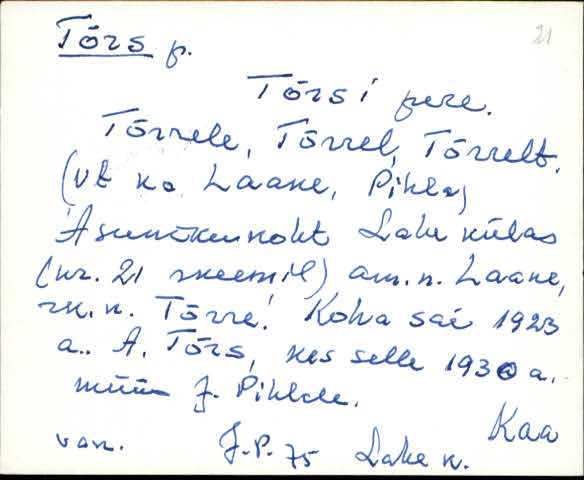 Tõrs p.
21
Tõrsi pere.
Tõrrele, Tõrrel, Tõrrelt.
(vt ka Laane, Pihla)
Asunikukoht Lahe külas
(nr. 21 skeemil) am. n. Laane,
rk. n. Tõrre! Koha sai 1923
a. A. Tõrs, kes selle 1930 a.
müüs J. Pihlale.
Kaa
van. J.P. 75 Lahe k.